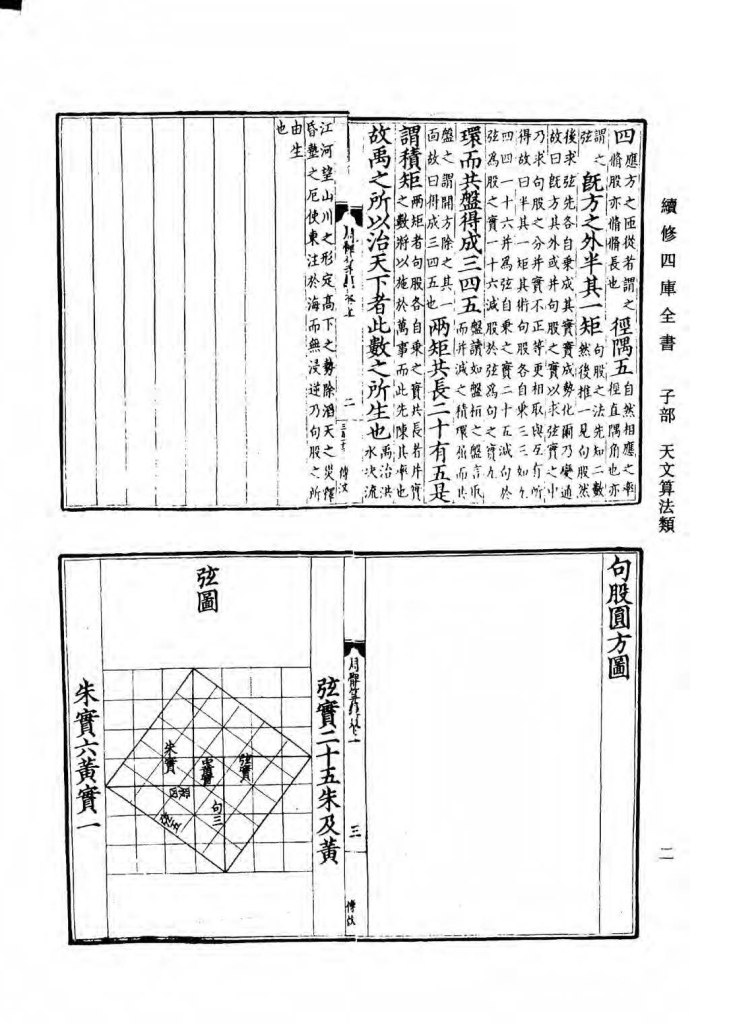 續修四庫全書 子部 天文算法類
二
四
應方之匝從者謂之
脩股亦脩脩長也
徑隅五
自然相應之率
徑直隅角也亦
謂之
弦
既方之外半其一矩
句股之法先知二數
然後推一見句股然
後求弦先各自乘成其實實成勢化爾乃變通
故曰既方其外或并句股之實以求弦實之中
乃求句股之分并實不正等更相取與互有所
得故曰半其一矩其術句股各自乘三三如九
四四一十六并為弦自乘之實二十五減句於
弦為股之實一十六減股於弦為句之實九
環而共盤得成三四五
盤讀如盤桓之盤言取
而并減之積環屈而共
盤之謂開方除之其一
面故曰得成三四五也
兩矩共長二十有五是
謂積矩
兩矩者句股各自乘之實共長者并實
之數將以施於萬事而此先陳其率也
故禹之所以治天下者此數之所生也
禹治洪
水決流
周髀算經卷上
二
傳汶
江河望山川之形定高下之勢除滔天之災釋
昏墊之厄使東注於海而無浸逆乃句股之所
由生
也
句股圓方圖
周髀算經卷上
三
傳汶
弦實二十五朱及黃
弦圖
弦實
中黃實
朱實
句三
股四
弦五
朱實六黃實一